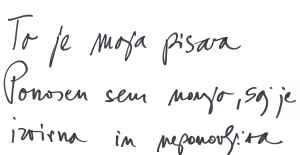 To je moja pisava
Ponosen sem nanjo, saj je
izvirna in neponovljiva